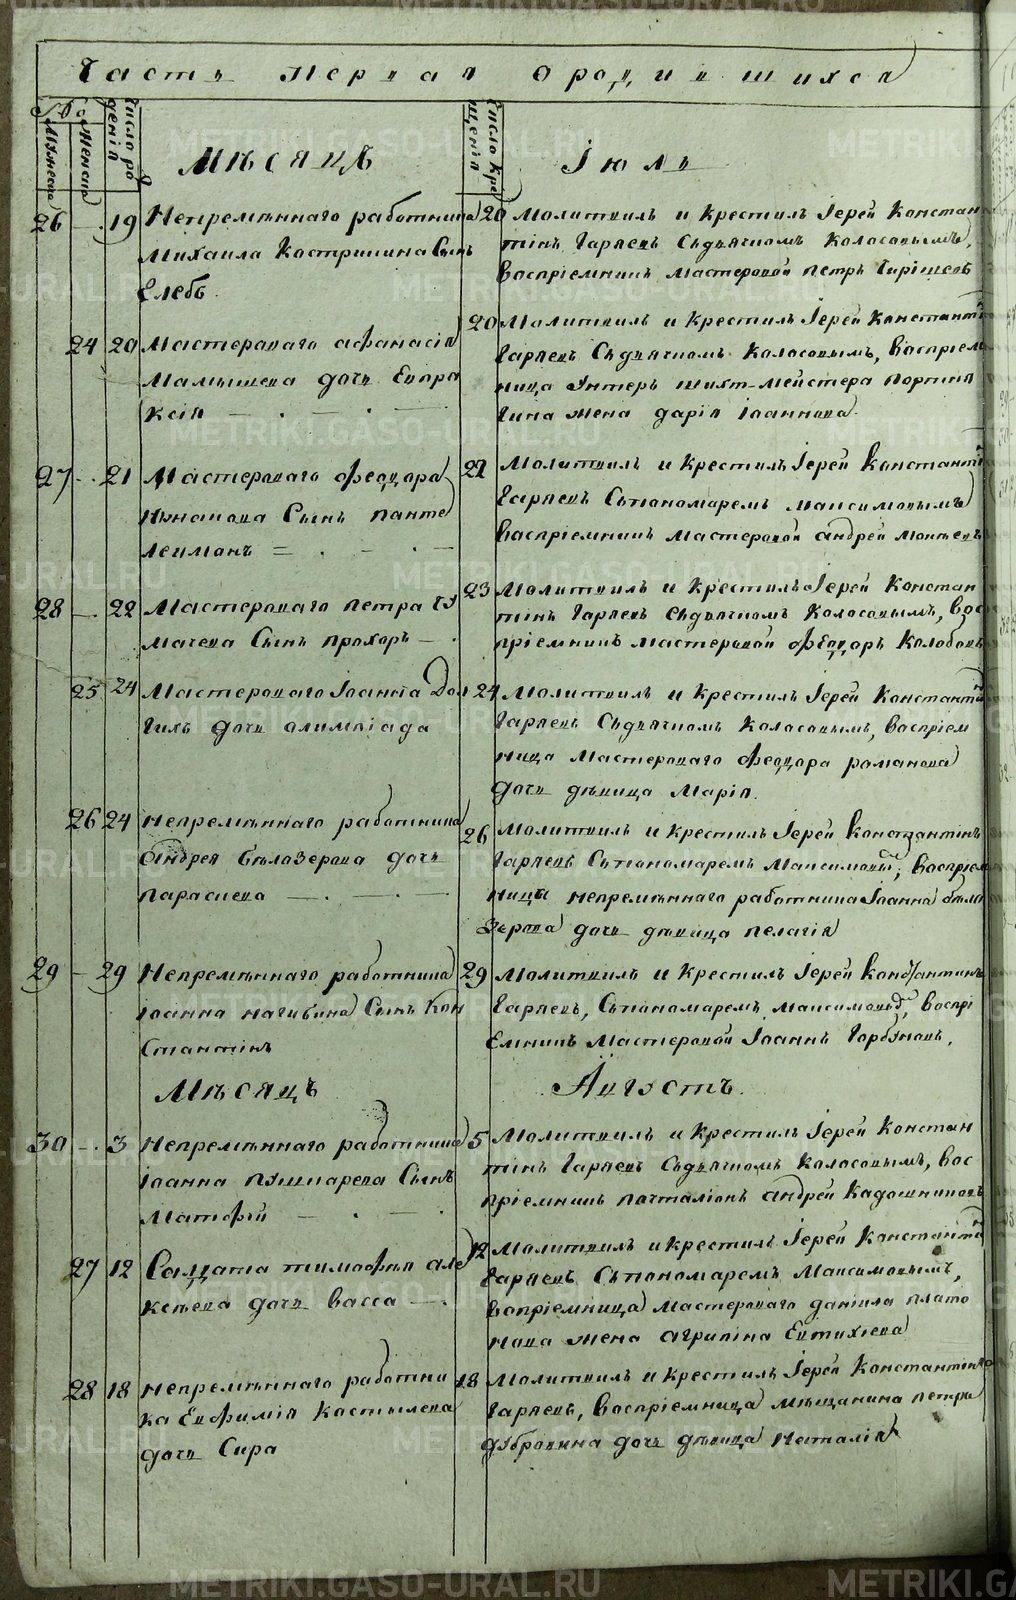 Часть первая о родившихся
№
Мужеска
Женска
Число рождения
Число крещения
Мѣсяцъ Іюль
26 19 Непремѣннаго работника
Михаила Костришина Сынъ
Глебъ.
20 Молитвилъ и крестилъ Іерей Констан
тінъ Гаряевъ Съдьячкомъ Колосовымъ,
воспріемникъ мастеровой петръ
24 20 Мастероваго афанасія
Мамышева дочь Евпра
ксія
20 Молитвилъ и крестилъ Іерей Константі
Гаряевъ Съдьячкомъ Колосовымъ, воспріем
ница Унтеръ шихт-мейстера портня
гина жена дарія Іоаннова.
27 21 Мастероваго феодора
Сынъ панте
леимонъ
22 Молитвилъ и крестилъ Іерей Константі
Гаряевъ Съпономаремъ Максимовымъ
воспріемникъ мастеровой андрей
28 22 Мастероваго петра чу
мачева Сынъ прохоръ
23 Молитвилъ и крестилъ Іерей Констан
тінъ Гаряевъ Съдьячкомъ Колосовымъ, вос
пріемникъ мастеровой феодоръ Колобовъ
25 24 Мастероваго Іоанна Дол
гихъ дочь олимпіада
24 Молитвилъ и крестилъ Іерей Константі
Гаряевъ Съдьячкомъ Колосовымъ, воспріем
ница мастероваго феодора романова
дочь дѣвица Марія.
26 24 непремѣннаго работника
Андрея Бѣлозерова дочь
параскева
26 Молитвилъ и крестилъ Іерей Константінъ
Гаряевъ Съпономаремъ Максимовы, воспріем
ница непремѣннаго работника Іоанна бѣло
зерова дочь дѣвица пелагія
29 29 Непремѣннаго работника
Іоанна нагибина Сынъ Кон
стантінъ
29 Молитвилъ и крестилъ Іерей Константинъ
Гаряевъ, Съпономаремъ Максимовы, воспрі
емникъ Мастеровой Іоаннъ Горбуновъ.
Мѣсяцъ Августъ.
30 3 Непремѣннаго работника
Іоанна пушкарева Сынъ
Матфій
5 Молитвилъ и крестилъ Іерей Констан
тінъ Гаряевъ Съдьячкомъ Колосовымъ, вос
пріемникъ почталіонъ андрей Кадошниковъ
27 12 Солдата тимофея але
ксѣева дочь васса
12 Молитвилъ и крестилъ Іерей Константі
Гаряевъ Съпономаремъ Максимовымъ,
вопріемница мастероваго даніила плато
нова жена агрипина Евтихіева
28 18 непремѣннаго работни
ка Евфимія Костылева
дочь Сира
18 Молитвилъ и крестилъ Іерей Константінъ
Гаряевъ, воспріемница мѣщанина петра
дубровина дочь дѣвица наталія
METRIKI.GASO-URAL.RU